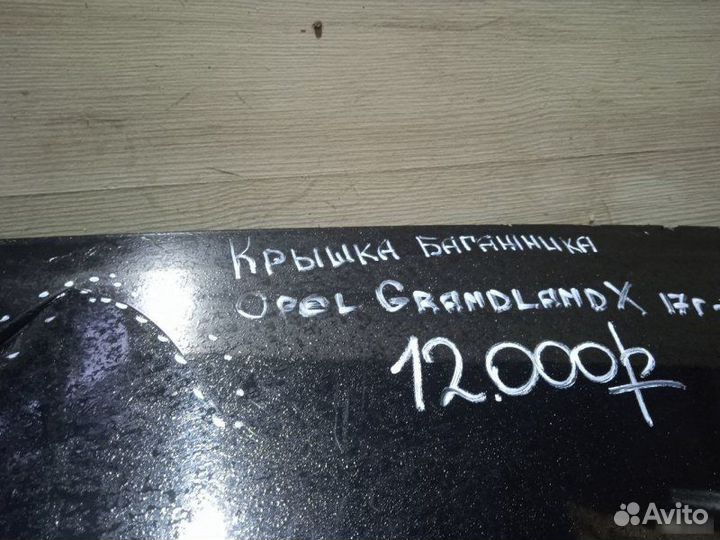 Крышка багажника
Opel Grandland X 17г-
12.000₽
Avito